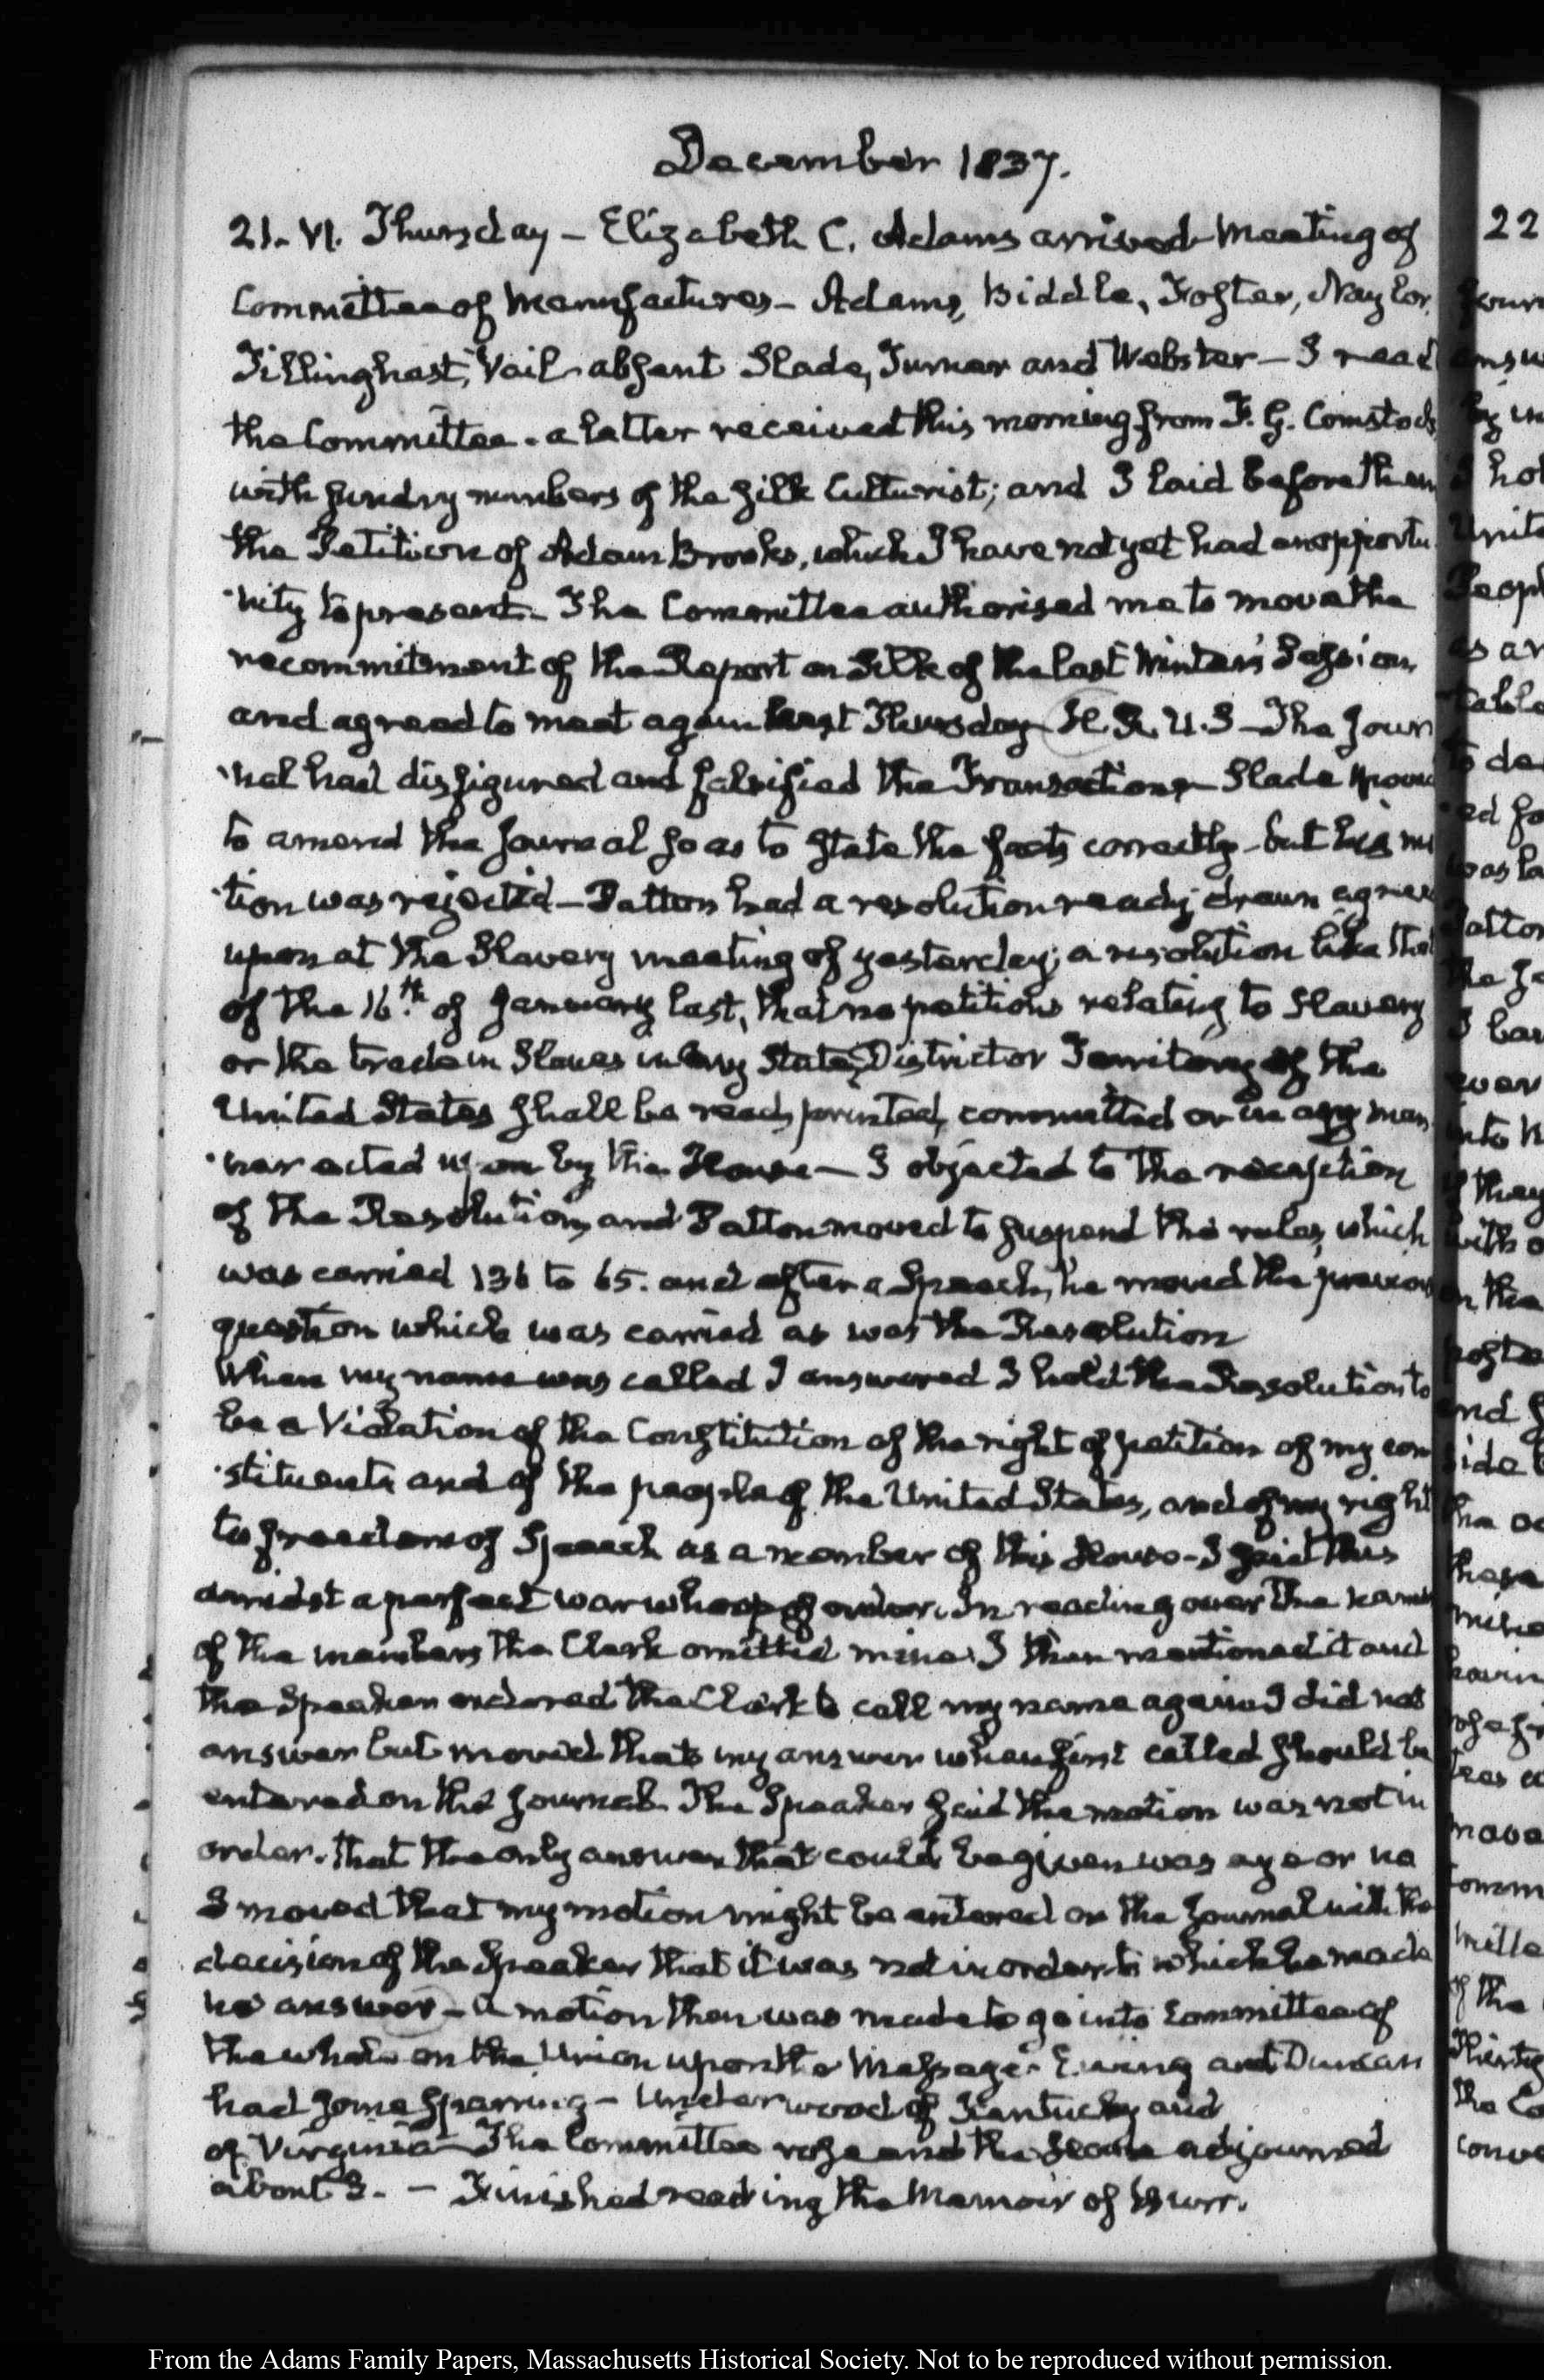 December 1837.
21. VI. Thursday – Elizabeth C. Adams arrived Meeting of
Committee of Manufactures – Adams, Biddle, Foster, Naylor,
Tillinghast, Vail absent Slade, Turner and Webster – I read
the Committee a letter received this morning from F. G. Comstock
with sundry numbers of the Silk Culturist; and I laid before them
the Petition of Adam Brooks, which I have not yet had an opportu
nity to present. The Committee authorised me to move the
recommitment of the Report on Silk of the last Winter's Session,
and agreed to meet again next Thursday H. R. U. S – The Jour
nal had disfigured and falsified the Transactions – Slade moved
to amend the Journal so as to state the facts correctly – but his mo
tion was rejected – Patton had a resolution ready drawn agreed
upon at the Slavery meeting of yesterday; a resolution like that
of the 16th of January last, that no petitions relating to Slavery
or the trade in Slaves in any State, District or Territory of the
United States shall be read, printed, committed or in any man
ner acted upon by the House – I objected to the reception
of the Resolution, and Patton moved to suspend the rules, which
was carried 136 to 65. and after a Speech, he moved the previous
question which was carried as was the Resolution
When my name was called I answered I hold the Resolution to
be a Violation of the Constitution of the right of petition of my con
stituents and of the people of the United States, and of my right
to freedom of Speech as a member of this House – I said this
amidst a perfect war whoop of order. In reading over the names
of the members the Clerk omitted mine. I then mentioned it and
the Speaker ordered the Clerk to call my name again I did not
answer but moved that my answer when first called should be
entered on the Journal. The Speaker said the motion was not in
order. that the only answer that could be given was aye or no
I moved that my motion might be entered on the Journal with the
decision of the Speaker that it was not in order to which he made
no answer – a motion then was made to go into Committee of
the whole on the Union upon the Message. Ewing and Duncan
had some sparring – Underwood of Kentucky and
of Virginia – The Committee rose and the House adjourned
about 3. – Finished reading the Memoir of Burr.
22
From the Adams Family Papers, Massachusetts Historical Society. Not to be reproduced without permission.